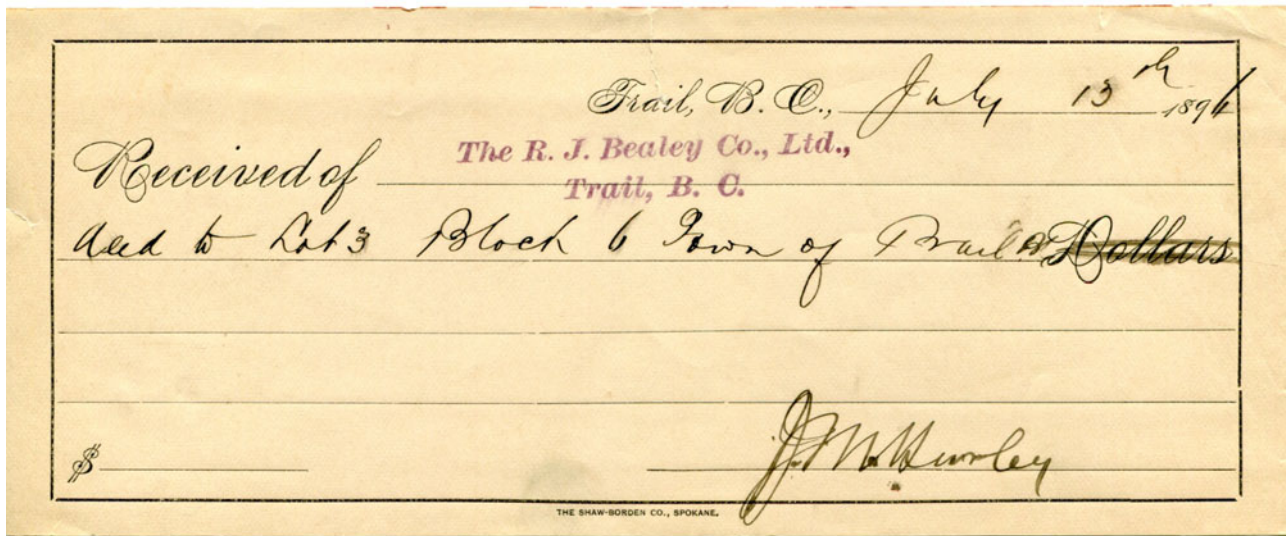 Trail, B. C., July 13th 1896
The R. J. Bealey Co., Ltd.,
Received of
Trail, B. C.
deed to Lot 3 Block 6 Town of Trail Dollars
$ J. M. Hurley
THE SHAW-BORDEN CO., SPOKANE.